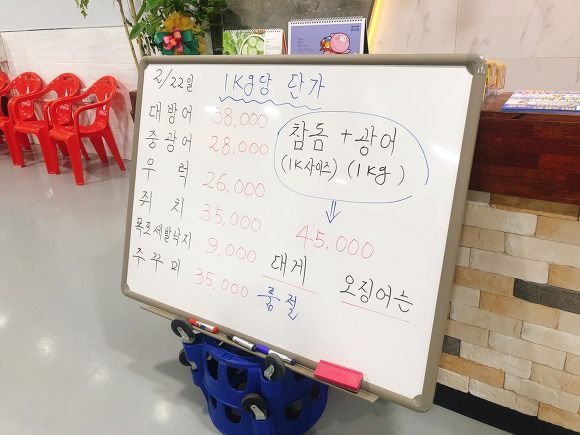 2/22일 1Kg당 단가
대방어 38,000
중광어 28,000
우럭 26,000
쥐치 35,000
목포세발낙지 9,000
주꾸미 35,000
참돔 + 광어
(1K사이즈) (1Kg)
45,000
대게
품절
오징어는